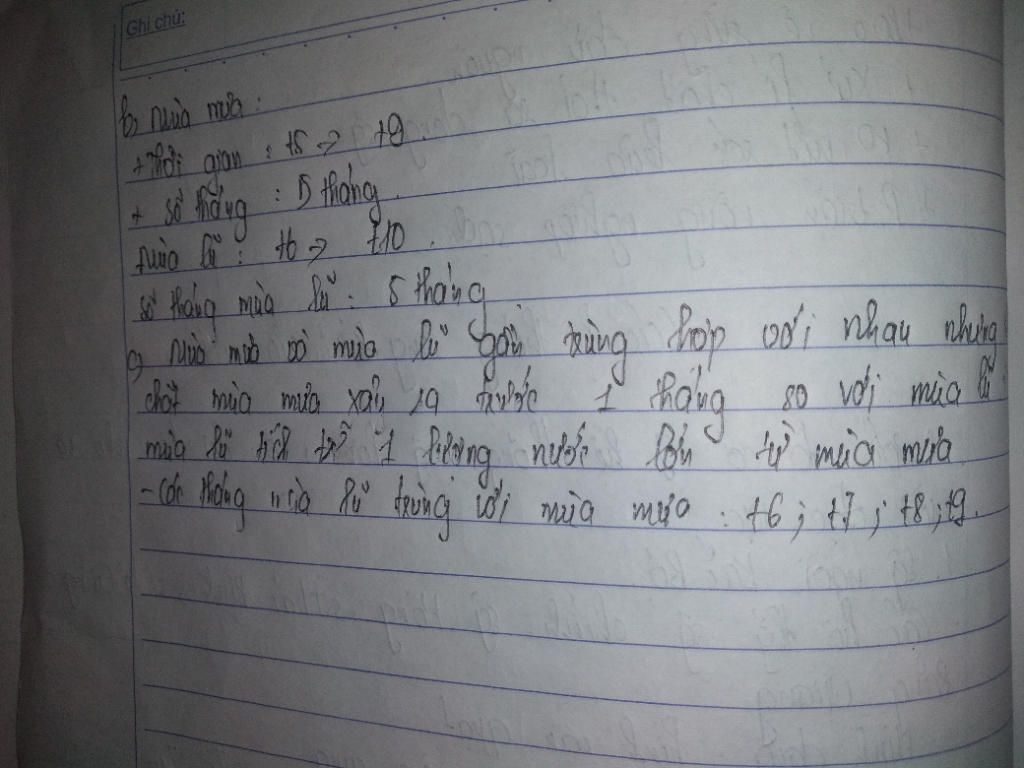 Ghi chú:
b, mùa mưa :
+ Thời gian : t5 => t9.
+ số tháng : 5 tháng.
mùa lũ : t6 => t10.
số tháng mùa lũ : 5 tháng
c, mùa mưa và mùa lũ gần trùng hợp với nhau nhưng
mùa mưa xảy ra trước 1 tháng so với mùa lũ
mùa lũ tích trữ 1 lượng nước lớn từ mùa mưa
- các tháng mùa lũ trùng với mùa mưa : t6 ; t7 ; t8 ; t9.